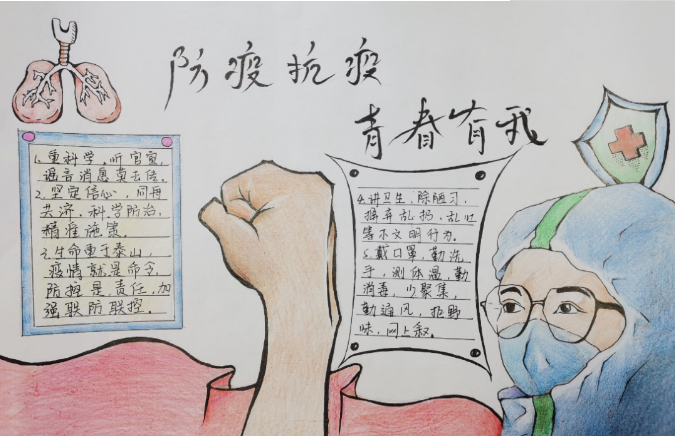 防疫抗疫
青春有我
1.重科学,听官宣,
谣言消息莫去传。
2.坚定信心,同舟
共济,科学防治,
精准施策。
3.生命重于泰山,
疫情就是命令,
防控是责任,加
强联防联控。
4.讲卫生,除陋习,
摒弃乱扔、乱吐
等不文明行为。
5.戴口罩,勤洗
手,测体温,勤
消毒,少聚集,
勤通风,拒野
味,网上叙。